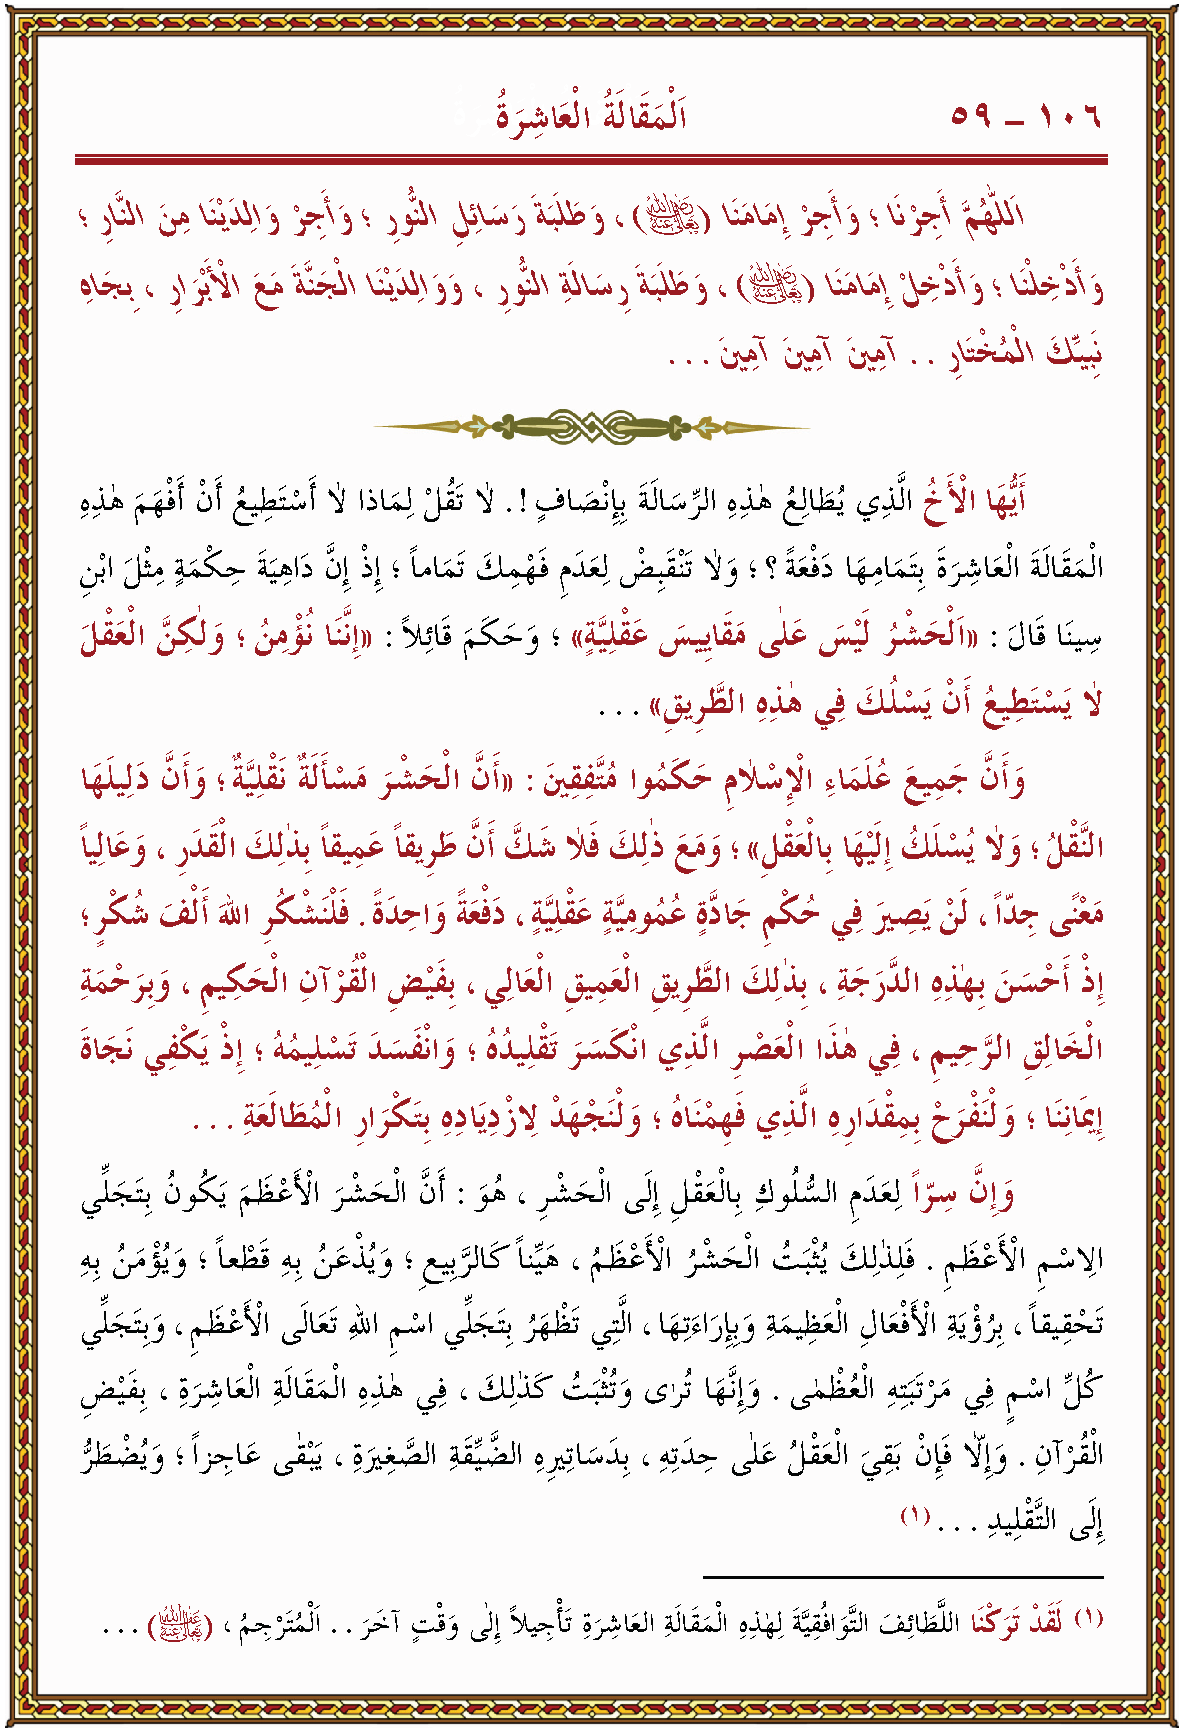 ١٠٦ – ٥٩ اَلْمَقَالَةُ الْعَاشِرَةُ
اَللّٰهُمَّ أَجِرْنَا ؛ وَأَجِرْ إِمَامَنَا (رَضِيَ اللّٰهُ تَعَالٰى عَنْهُ) ، وَطَلَبَةَ رَسَائِلِ النُّورِ ؛ وَأَجِرْ وَالِدَيْنَا مِنَ النَّارِ ؛
وَأَدْخِلْنَا ؛ وَأَدْخِلْ إِمَامَنَا (رَضِيَ اللّٰهُ تَعَالٰى عَنْهُ) ، وَطَلَبَةَ رِسَالَةِ النُّورِ ، وَوَالِدَيْنَا الْجَنَّةَ مَعَ الْأَبْرَارِ ، بِجَاهِ
نَبِيِّكَ الْمُخْتَارِ . . آمِينَ آمِينَ آمِينَ . . .
أَيُّهَا الْأَخُ الَّذِي يُطَالِعُ هٰذِهِ الرِّسَالَةَ بِإِنْصَافٍ !. لاٰ تَقُلْ لِمَاذَا لاٰ أَسْتَطِيعُ أَنْ أَفْهَمَ هٰذِهِ
الْمَقَالَةَ الْعَاشِرَةَ بِتَمَامِهَا دَفْعَةً ؟ ؛ وَلاٰ تَنْقَبِضْ لِعَدَمِ فَهْمِكَ تَمَاماً ؛ إِذْ إِنَّ دَاهِيَةَ حِكْمَةٍ مِثْلَ ابْنِ
سِينَا قَالَ : «اَلْحَشْرُ لَيْسَ عَلٰى مَقَايِيسَ عَقْلِيَّةٍ» ؛ وَحَكَمَ قَائِلاً : «إِنَّنَا نُؤْمِنُ ؛ وَلٰكِنَّ الْعَقْلَ
لاٰ يَسْتَطِيعُ أَنْ يَسْلُكَ فِي هٰذِهِ الطَّرِيقِ» . . .
وَأَنَّ جَمِيعَ عُلَمَاءِ الْإِسْلاٰمِ حَكَمُوا مُتَّفِقِينَ : «أَنَّ الْحَشْرَ مَسْأَلَةٌ نَقْلِيَّةٌ ؛ وَأَنَّ دَلِيلَهَا
النَّقْلُ ؛ وَلاٰ يُسْلَكُ إِلَيْهَا بِالْعَقْلِ» ؛ وَمَعَ ذٰلِكَ فَلاٰ شَكَّ أَنَّ طَرِيقاً عَمِيقاً بِذٰلِكَ الْقَدَرِ ، وَعَالِياً
مَعْنًى جِدّاً ، لَنْ يَصِيرَ فِي حُكْمِ جَادَّةٍ عُمُومِيَّةٍ عَقْلِيَّةٍ ، دَفْعَةً وَاحِدَةً . فَلْنَشْكُرِ اللهَ أَلْفَ شُكْرٍ ؛
إِذْ أَحْسَنَ بِهٰذِهِ الدَّرَجَةِ ، بِذٰلِكَ الطَّرِيقِ الْعَمِيقِ الْعَالِي ، بِفَيْضِ الْقُرْآنِ الْحَكِيمِ ، وَبِرَحْمَةِ
الْخَالِقِ الرَّحِيمِ ، فِي هٰذَا الْعَصْرِ الَّذِي انْكَسَرَ تَقْلِيدُهُ ؛ وَانْفَسَدَ تَسْلِيمُهُ ؛ إِذْ يَكْفِي نَجَاةَ
إِيمَانِنَا ؛ وَلْنَفْرَحْ بِمِقْدَارِهِ الَّذِي فَهِمْنَاهُ ؛ وَلْنَجْهَدْ لِازْدِيَادِهِ بِتَكْرَارِ الْمُطَالَعَةِ . . .
وَإِنَّ سِرّاً لِعَدَمِ السُّلُوكِ بِالْعَقْلِ إِلَى الْحَشْرِ ، هُوَ : أَنَّ الْحَشْرَ الْأَعْظَمَ يَكُونُ بِتَجَلِّي
الِاسْمِ الْأَعْظَمِ . فَلِذٰلِكَ يُثْبَتُ الْحَشْرُ الْأَعْظَمُ ، هَيِّناً كَالرَّبِيعِ ؛ وَيُذْعَنُ بِهِ قَطْعاً ؛ وَيُؤْمَنُ بِهِ
تَحْقِيقاً ، بِرُؤْيَةِ الْأَفْعَالِ الْعَظِيمَةِ وَبِإِرَاءَتِهَا ، الَّتِي تَظْهَرُ بِتَجَلِّي اسْمِ اللهِ تَعَالَى الْأَعْظَمِ ، وَبِتَجَلِّي
كُلِّ اسْمٍ فِي مَرْتَبَتِهِ الْعُظْمٰى . وَإِنَّهَا تُرٰى وَتُثْبَتُ كَذٰلِكَ ، فِي هٰذِهِ الْمَقَالَةِ الْعَاشِرَةِ ، بِفَيْضِ
الْقُرْآنِ . وَإِلاّٰ فَإِنْ بَقِيَ الْعَقْلُ عَلٰى حِدَتِهِ ، بِدَسَاتِيرِهِ الضَّيِّقَةِ الصَّغِيرَةِ ، يَبْقٰى عَاجِزاً ؛ وَيُضْطَرُّ
إِلَى التَّقْلِيدِ . . . (١)
(١) لَقَدْ تَرَكْنَا اللَّطَائِفَ التَّوَافُقِيَّةَ لِهٰذِهِ الْمَقَالَةِ العَاشِرَةِ تَأْجِيلاً إِلٰى وَقْتٍ آخَرَ . . اَلْمُتَرْجِمُ ، (عَفَا اللّٰهُ عَنْهُ) . . .